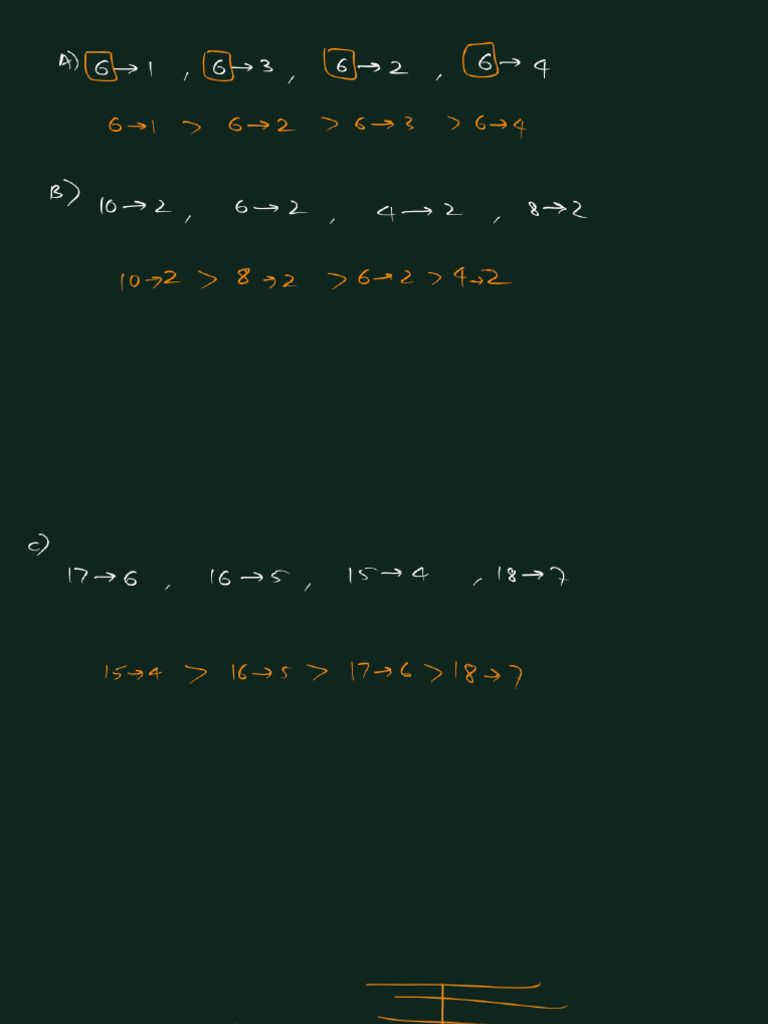 A) 6→1 , 6→3 , 6→2 , 6→4
6→1 > 6→2 > 6→3 > 6→4
B) 10→2 , 6→2 , 4→2 , 8→2
10→2 > 8→2 > 6→2 > 4→2
C)
17→6 , 16→5 , 15→4 , 18→7
15→4 > 16→5 > 17→6 > 18→7